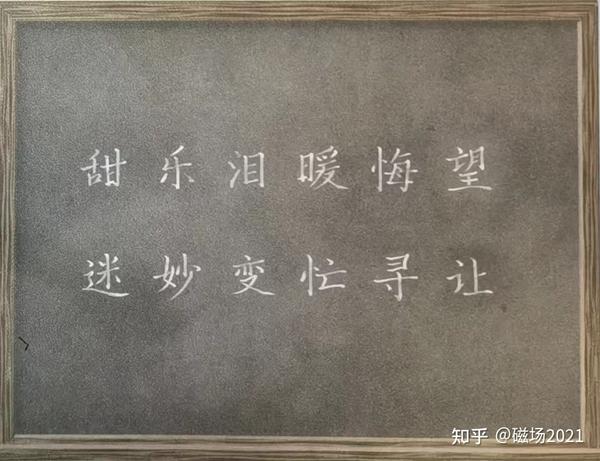 甜乐泪暖悔望
迷妙变忙寻让
知乎 @磁场2021